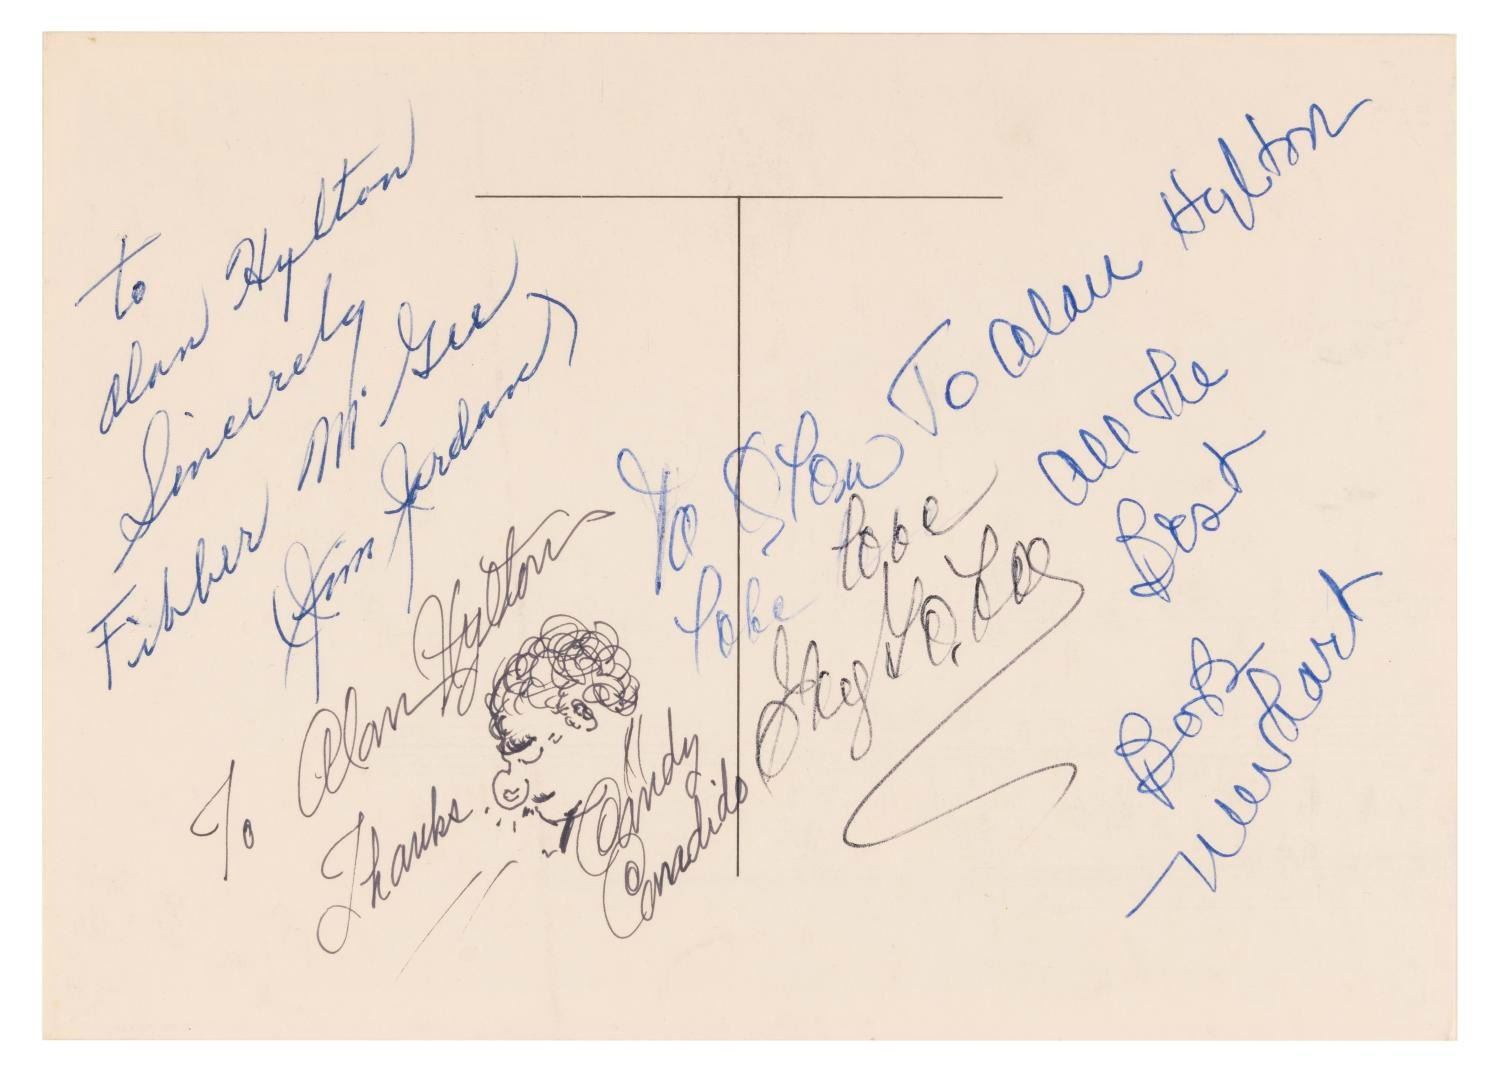 to
Alan Hylton
Sincerely
Fibber McGee
(Jim Jordan)
To Alan Hylton
Thanks
Candy
Candido
To
Love Love
To Alan Hylton
All the
Best
Bob
Newhart